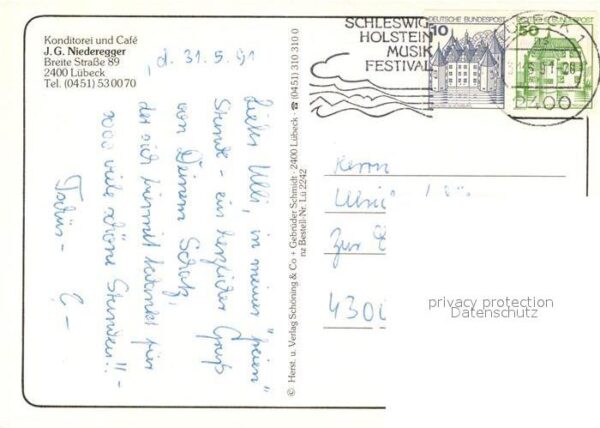 Konditorei und Café
J. G. Niederegger
Breite Straße 89
2400 Lübeck
Tel. (0451) 53 00 70
d. 31.5.91
Lieber Ulli, in meiner "freien"
Stunde - ein herzlicher Gruß
von Deinem Schatz,
der sich hiermit bedankt für
viele schöne Stunden!! -
Tschüs -
© Herst. u. Verlag Schöning & Co + Gebrüder Schmidt · 2400 Lübeck · ☎ (0451) 310 310 0
nz Bestell-Nr. Lü 2242
SCHLESWIG-
HOLSTEIN
MUSIK
FESTIVAL
DEUTSCHE BUNDESPOST
10
DEUTSCHE BUNDESPOST
50
LÜBECK 1
2400
Herrn
Zur
4300
privacy protection
Datenschutz